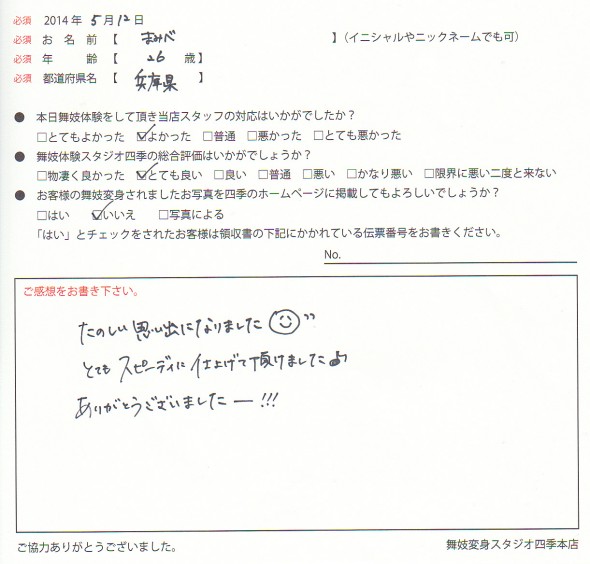 必須 2014年 5月12日
必須 お名前【 まみべ 】(イニシャルやニックネームでも可)
必須 年齢【 26 歳】
必須 都道府県名【 兵庫県 】
● 本日舞妓体験をして頂き当店スタッフの対応はいかがでしたか?
□とてもよかった ☑よかった □普通 □悪かった □とても悪かった
● 舞妓体験スタジオ四季の総合評価はいかがでしょうか?
□物凄く良かった ☑とても良い □良い □普通 □悪い □かなり悪い □限界に悪い二度と来ない
● お客様の舞妓変身されましたお写真を四季のホームページに掲載してもよろしいでしょうか?
□はい ☑いいえ □写真による
「はい」とチェックをされたお客様は領収書の下記にかかれている伝票番号をお書きください。
No.
ご感想をお書き下さい。
たのしい思い出になりました
とてもスピーディに仕上げて頂けました♪
ありがとうございましたー!!!
ご協力ありがとうございました。
舞妓変身スタジオ四季本店